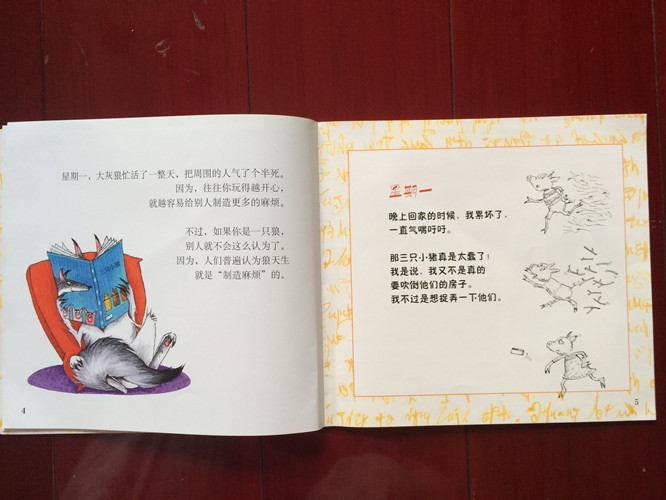 星期一，大灰狼忙活了一整天，把周围的人气了个半死。
因为，往往你玩得越开心，
就越容易给别人制造更多的麻烦。
不过，如果你是一只狼，
别人就不会这么认为了。
因为，人们普遍认为狼天生
就是“制造麻烦”的。
4
星期一
晚上回家的时候，我累坏了，
一直气喘吁吁。
那三只小猪真是太蠢了！
我是说，我又不是真的
要吹倒他们的房子。
我不过是想捉弄一下他们。
5